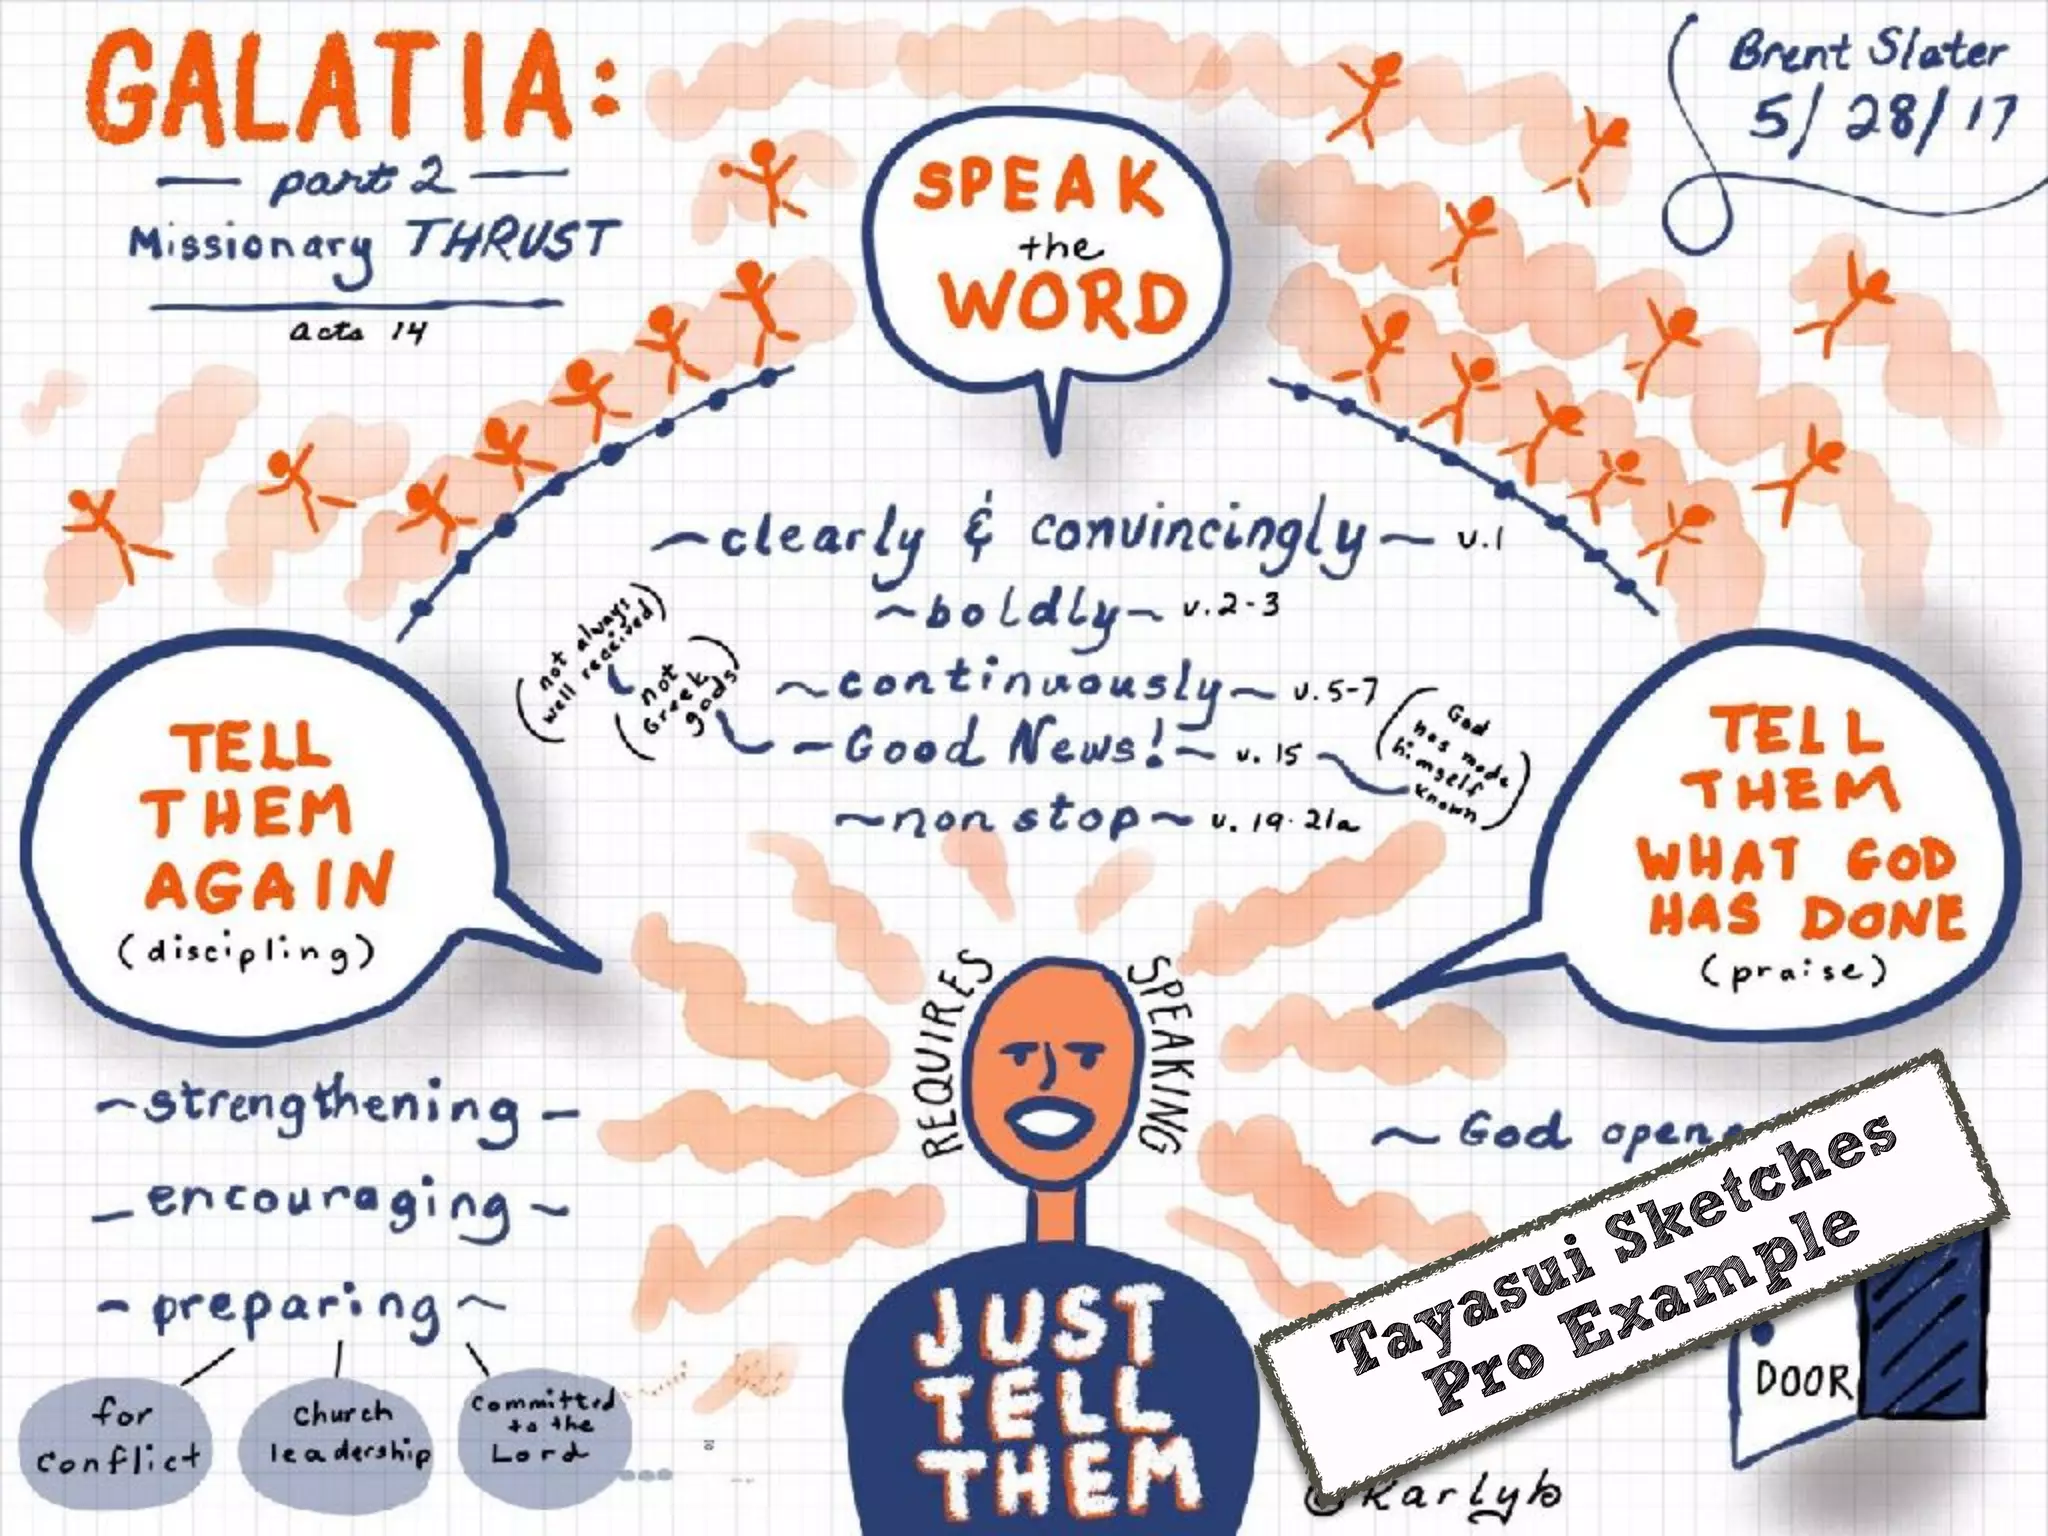 GALATIA:
part 2
Missionary THRUST
acts 14
Brent Slater
5/28/17
SPEAK
the
WORD
~clearly & convincingly~ v.1
~boldly~ v.2-3
~continuously~ v.5-7
-Good News!~ v. 15
~non stop~ v. 19-21a
(not always
well received)
(not
Greek
gods)
(God
has made
himself
known)
TELL
THEM
AGAIN
(discipling)
~strengthening-
-encouraging~
-preparing~
for
conflict
church
leadership
committed
to the
Lord
TELL
THEM
WHAT GOD
HAS DONE
(praise)
~God open
REQUIRES
SPEAKING
JUST
TELL
THEM
Tayasui Sketches
Pro Example
DOOR
©Karlyb